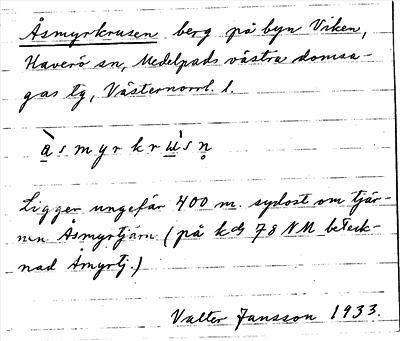 Åsmyrkrusen berg på byn Viken,
Haverö sn, Medelpads västra domsa-
gas tg, Västernorrl. l.
à̱ s m y r k r ù̱ s n̥
Ligger ungefär 400 m. sydost om tjär-
nen Åsmyrtjärn (på kbl 78 NM beteck-
nad Åmyrtj.)
Valter Jansson 1933.